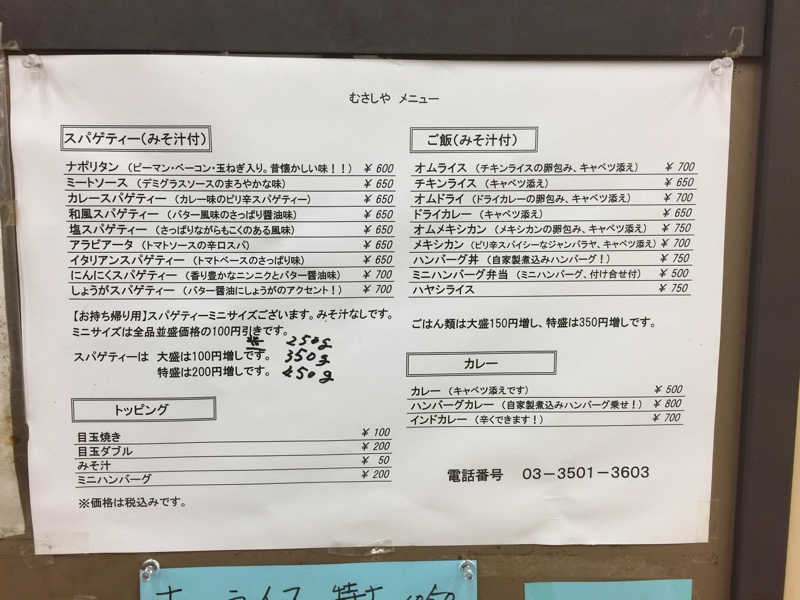 むさしや メニュー
スパゲティー(みそ汁付)
ナポリタン (ピーマン・ベーコン・玉ねぎ入り。昔懐かしい味!!) ¥600
ミートソース (デミグラスソースのまろやかな味) ¥650
カレースパゲティー (カレー味のピリ辛スパゲティー) ¥650
和風スパゲティー (バター風味のさっぱり醤油味) ¥650
塩スパゲティー (さっぱりながらもこくのある風味) ¥650
アラビアータ (トマトソースの辛口スパ) ¥650
イタリアンスパゲティー (トマトベースのさっぱり味) ¥650
にんにくスパゲティー (香り豊かなニンニクとバター醤油味) ¥700
しょうがスパゲティー (バター醤油にしょうがのアクセント!) ¥700
【お持ち帰り用】スパゲティーミニサイズございます。みそ汁なしです。
ミニサイズは全品並盛価格の100円引きです。
並 250g
スパゲティーは 大盛は100円増しです。 350g
特盛は200円増しです。 450g
トッピング
目玉焼き ¥100
目玉ダブル ¥200
みそ汁 ¥50
ミニハンバーグ ¥200
※価格は税込みです。
ご飯(みそ汁付)
オムライス (チキンライスの卵包み、キャベツ添え) ¥700
チキンライス (キャベツ添え) ¥650
オムドライ (ドライカレーの卵包み、キャベツ添え) ¥700
ドライカレー (キャベツ添え) ¥650
オムメキシカン (メキシカンの卵包み、キャベツ添え) ¥750
メキシカン (ピリ辛スパイシーなジャンバラヤ、キャベツ添え) ¥700
ハンバーグ丼 (自家製煮込みハンバーグ!) ¥750
ミニハンバーグ弁当 (ミニハンバーグ、付け合せ付) ¥500
ハヤシライス ¥750
ごはん類は大盛150円増し、特盛は350円増しです。
カレー
カレー (キャベツ添えです) ¥500
ハンバーグカレー (自家製煮込みハンバーグ乗せ!) ¥800
インドカレー (辛くできます!) ¥700
電話番号 03-3501-3603